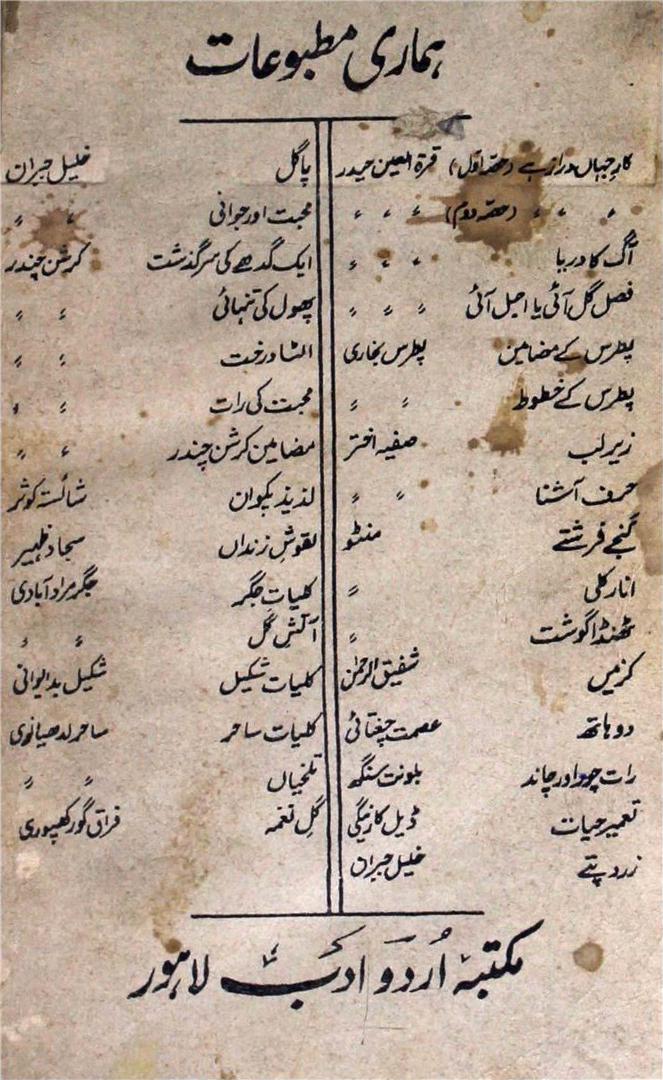 ہماری مطبوعات
کارِ جہاں دراز ہے (حصہ اوّل) قرۃ العین حیدر
〃 〃 〃 (حصہ دوم) 〃 〃 〃
آگ کا دریا 〃 〃 〃
فصل گل آئی یا اجل آئی 〃 〃 〃
پطرس کے مضامین پطرس بخاری
پطرس کے خطوط 〃 〃
زیر لب صفیہ اختر
حرف آشنا 〃 〃
گنجے فرشتے منٹو
انار کلی 〃
ٹھنڈا گوشت 〃
کرنیں شفیق الرحمٰن
دو ہاتھ عصمت چغتائی
رات چور اور چاند بلونت سنگھ
تعمیر حیات ڈیل کارنیگی
زرد پتے خلیل جبران
پاگل خلیل جبران
محبت اور جوانی 〃 〃
ایک گدھے کی سرگذشت کرشن چندر
پھول کی تنہائی 〃 〃
الٹا درخت 〃 〃
محبت کی رات 〃 〃
مضامین کرشن چندر 〃 〃
لذیذ پکوان شائستہ کوثر
نقوشِ زنداں سجاد ظہیر
کلیاتِ جگر جگر مراد آبادی
آتشِ گل 〃 〃
کلیات شکیل شکیل بدایوانی
کلیات ساحر ساحر لدھیانوی
تلخیاں 〃 〃
گلِ نغمہ فراق گورکھپوری
مکتبہ اُردو ادب لاہور